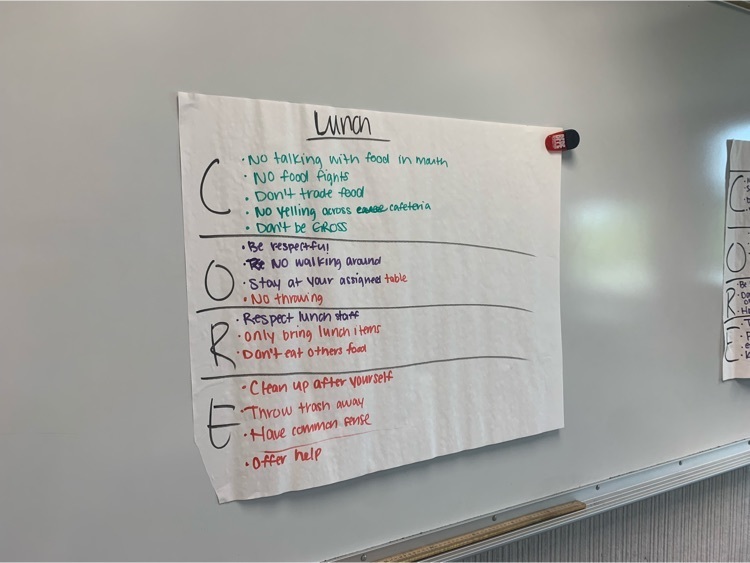 Lunch
C
• No talking with food in mouth
• No food fights
• Don't trade food
• No yelling across cafeteria
• Don't be GROSS
O
• Be respectful
• No walking around
• Stay at your assigned table
• No throwing
R
• Respect lunch staff
• only bring lunch items
• Don't eat others food
E
• Clean up after yourself
• Throw trash away
• Have common sense
• Offer help
C
O
R
E